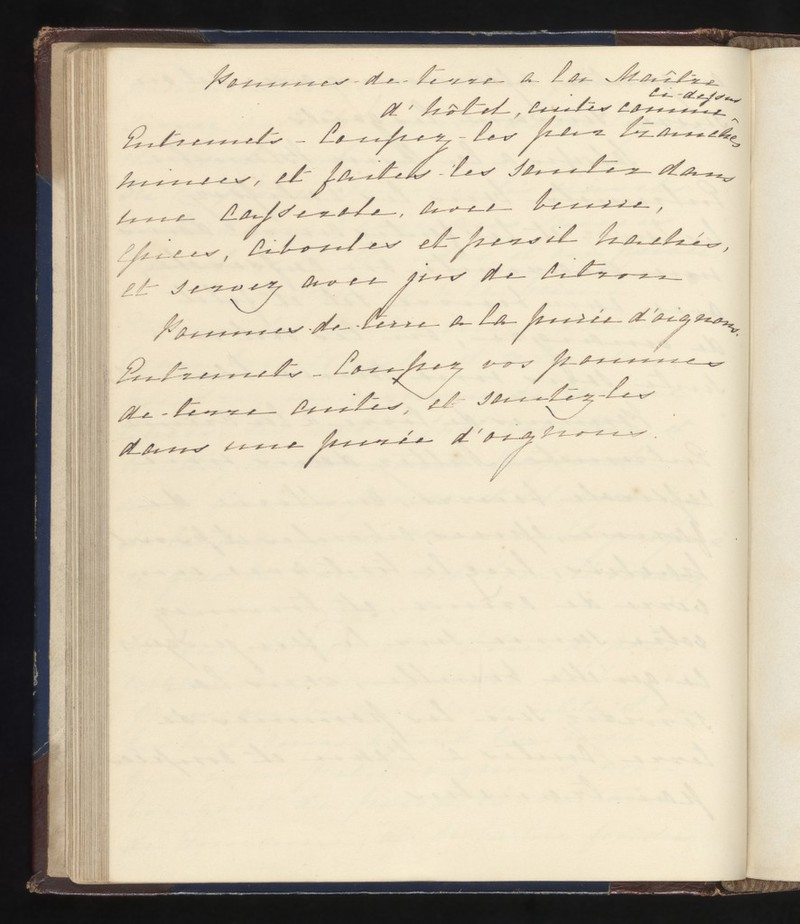 Pommes-de-terre a la Maître
d'hôtel, cuites comme ci-dessus
Entremets - Coupez-les par tranches
minces, et faites-les sauter dans
une casserole, avec beurre,
épices, ciboules et persil hachés,
et servez avec jus de citron
Pommes-de-terre a la purée d'oignons.
Entremets - Coupez vos pommes
de-terre cuites, et sautez-les
dans une purée d'oignons.